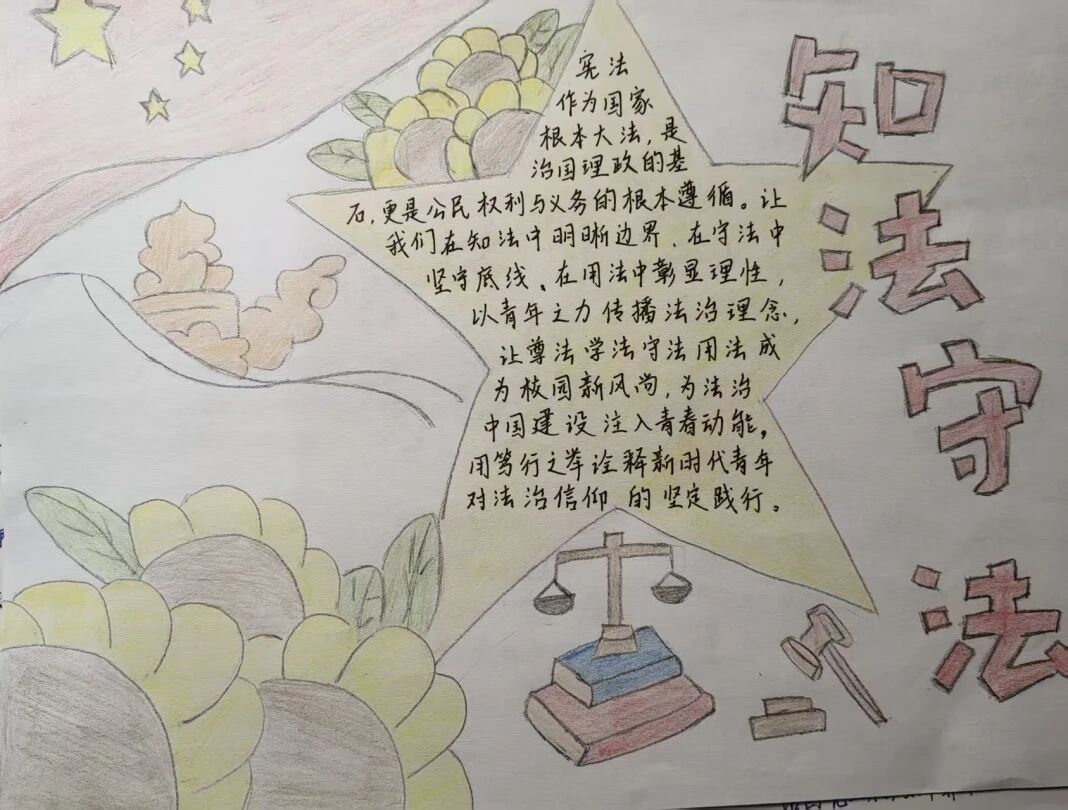 知法守法
宪法
作为国家
根本大法,是
治国理政的基
石,更是公民权利与义务的根本遵循。让
我们在知法中明晰边界、在守法中
坚守底线、在用法中彰显理性,
以青年之力传播法治理念,
让尊法学法守法用法成
为校园新风尚,为法治
中国建设注入青春动能,
用笃行之举诠释新时代青年
对法治信仰的坚定践行。